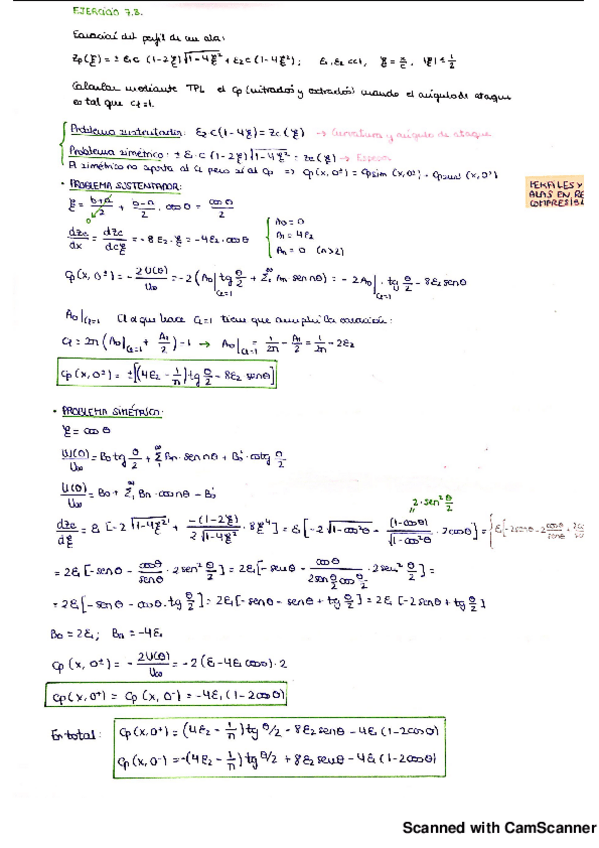 EJERCICIO 7.3.
Ecuación del perfil de un ala:
Zp(ξ) = ± ε₁c (1-2ξ)√(1-4ξ²) + ε₂c (1-4ξ²); ε₁, ε₂ <<1, ξ = x/c, |ξ| ≤ 1/2
Calcular mediante TPL el Cp (intradós y extradós) cuando el ángulo de ataque
es tal que cl=1.
Problema sustentador: ε₂ c (1-4ξ) = Zc (ξ) → Curvatura y ángulo de ataque
Problema simétrico: ± ε₁ c (1-2ξ)√(1-4ξ²) = Ze (ξ) → Espesor
El simétrico no aporta al cl pero sí al Cp ⇒ Cp(x,0±) = Cpsim (x,0±) + Cpsust (x,0±)
PERFILES Y
ALAS EN RE
COMPRESIBL
• PROBLEMA SUSTENTADOR:
ξ = (b+a)/2 + (b-a)/2 · cosθ = cosθ/2
0
dzc/dx = dzc/dcξ = -8 ε₂·ξ = -4ε₂·cosθ
A₀ = 0
A₁ = 4ε₂
An = 0 (n≥2)
Cp(x,0±) = - 2U(θ)/U∞ = -2 (A₀|cl=1 tg θ/2 + Σ₁^∞ An sen nθ) = -2A₀|cl=1 · tg θ/2 - 8ε₂ senθ
A₀|cl=1 El α que hace cl=1 tiene que cumplir la ecuación:
cl = 2π (A₀|cl=1 + A₁/2) = 1 → A₀|cl=1 = 1/2π - A₁/2 = 1/2π - 2ε₂
Cp(x,0±) = ±[(4ε₂ - 1/π) tg θ/2 - 8ε₂ senθ]
• PROBLEMA SIMÉTRICO:
ξ = cosθ
W(θ)/U∞ = B₀ tg θ/2 + Σ₁^∞ Bn· sen nθ + B₀' · cotg θ/2
U(θ)/U∞ = B₀ + Σ₁^∞ Bn · cos nθ - B₀'
2·sen² θ/2
dze/dξ = ε₁ [-2 √(1-4ξ²) + -(1-2ξ)/(2√(1-4ξ²)) · 8ξ] = ε₁ [-2√(1-cos²θ) - (1-cosθ)/√(1-cos²θ) · 2cosθ] =
= 2ε₁ [-senθ - cosθ/senθ · 2sen² θ/2] = 2ε₁ [-senθ - cosθ/(2sen θ/2 cos θ/2) · 2sen² θ/2] =
= 2ε₁ [-senθ - cosθ. tg θ/2] = 2ε₁ [-senθ - senθ + tg θ/2] = 2ε₁ [-2senθ + tg θ/2]
B₀ = 2ε₁; Bn = -4ε₁
Cp (x,0±) = - 2U(θ)/U∞ = -2 (ε - 4ε₁ cosθ) · 2
Cp(x,0⁺) = Cp (x,0⁻) = -4ε₁ (1-2cosθ)
En total: Cp(x,0⁺) = (4ε₂ - 1/π) tg θ/2 - 8ε₂ senθ - 4ε₁ (1-2cosθ)
Cp(x,0⁻) = -(4ε₂ - 1/π) tg θ/2 + 8ε₂ senθ - 4ε₁ (1-2cosθ)
Scanned with CamScanner